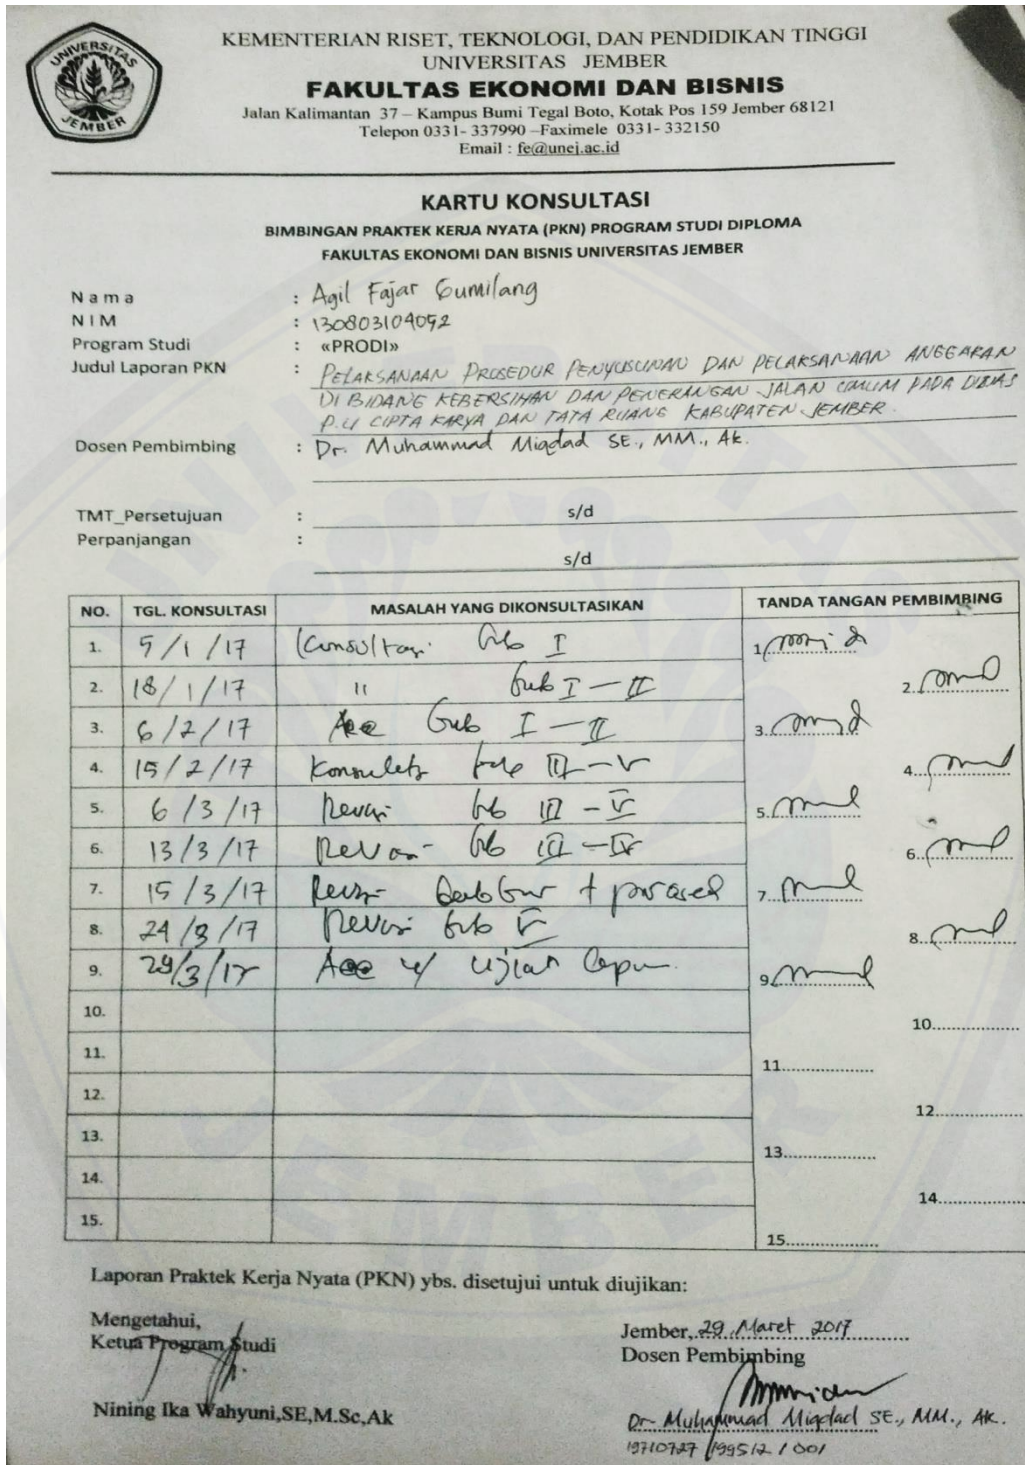 UNIVERSITAS
JEMBER
KEMENTERIAN RISET, TEKNOLOGI, DAN PENDIDIKAN TINGGI
UNIVERSITAS JEMBER
FAKULTAS EKONOMI DAN BISNIS
Jalan Kalimantan 37 – Kampus Bumi Tegal Boto, Kotak Pos 159 Jember 68121
Telepon 0331- 337990 –Faximele 0331- 332150
Email : fe@unej.ac.id
KARTU KONSULTASI
BIMBINGAN PRAKTEK KERJA NYATA (PKN) PROGRAM STUDI DIPLOMA
FAKULTAS EKONOMI DAN BISNIS UNIVERSITAS JEMBER
Nama : Agil Fajar Gumilang
NIM : 130803104052
Program Studi : «PRODI»
Judul Laporan PKN : PELAKSANAAN PROSEDUR PENYUSUNAN DAN PELAKSANAAN ANGGARAN
DI BIDANG KEBERSIHAN DAN PENERANGAN JALAN UMUM PADA DINAS
P.U CIPTA KARYA DAN TATA RUANG KABUPATEN JEMBER.
Dosen Pembimbing : Dr. Muhammad Miqdad SE., MM., Ak.
TMT_Persetujuan : s/d
Perpanjangan :
s/d
NO. TGL. KONSULTASI MASALAH YANG DIKONSULTASIKAN TANDA TANGAN PEMBIMBING
1. 5/1/17 Konsultasi I 1
2. 18/1/17 " I – II 2.
3. 6/2/17 Acc I – II 3.
4. 15/2/17 III – V 4.
5. 6/3/17 Revisi III – V 5.
6. 13/3/17 Revisi III – IV 6.
7. 15/3/17 Revisi + 7.
8. 24/3/17 Revisi V 8.
9. 29/3/17 Acc u/ Ujian 9.
10. 10.
11. 11.
12. 12.
13. 13.
14. 14.
15. 15.
Laporan Praktek Kerja Nyata (PKN) ybs. disetujui untuk diujikan:
Mengetahui,
Ketua Program Studi
Nining Ika Wahyuni,SE,M.Sc,Ak
Jember, 29 Maret 2017
Dosen Pembimbing
Dr. Muhammad Miqdad SE., MM., Ak.
19710727 199512 1 001